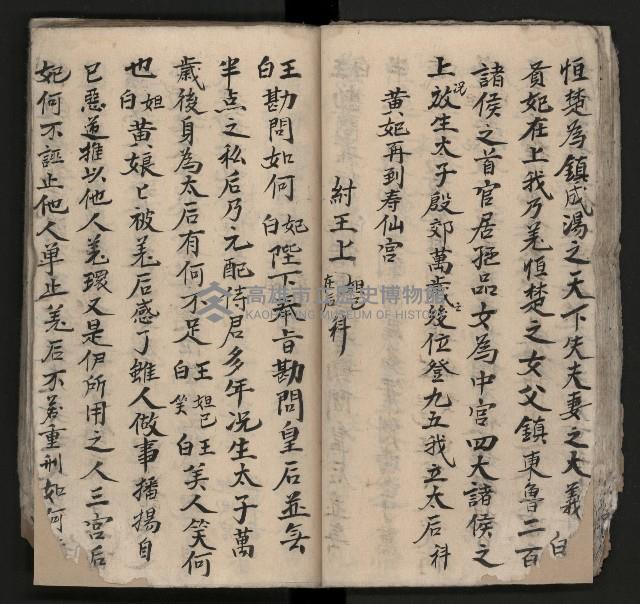 恒楚為鎮成湯之天下失夫妻之大義 白
貢妃在上我乃羌恒楚之女父鎮東魯二百
諸侯之首官居極品女為中宮四大諸侯之
上況放生太子殷郊萬歲後位登九五我立太后 科
黃妃再到寿仙宮
紂王上 妲己在 科
王白 勘問如何 妃白 陛下奉旨勘問皇后並無
半点之私后乃元配侍君多年况生太子萬
歲後身為太后有何不足 王白 妲己笑 王白 美人笑何
也 妲白 黃娘匕被羌后感了雖人做事播揚自
己惡道推以他人羌環又是伊所用之人三宮后
妃何不誣止他人单止羌后不羌重刑如何
高雄市立歷史博物館
KAOHSIUNG MUSEUM OF HISTORY